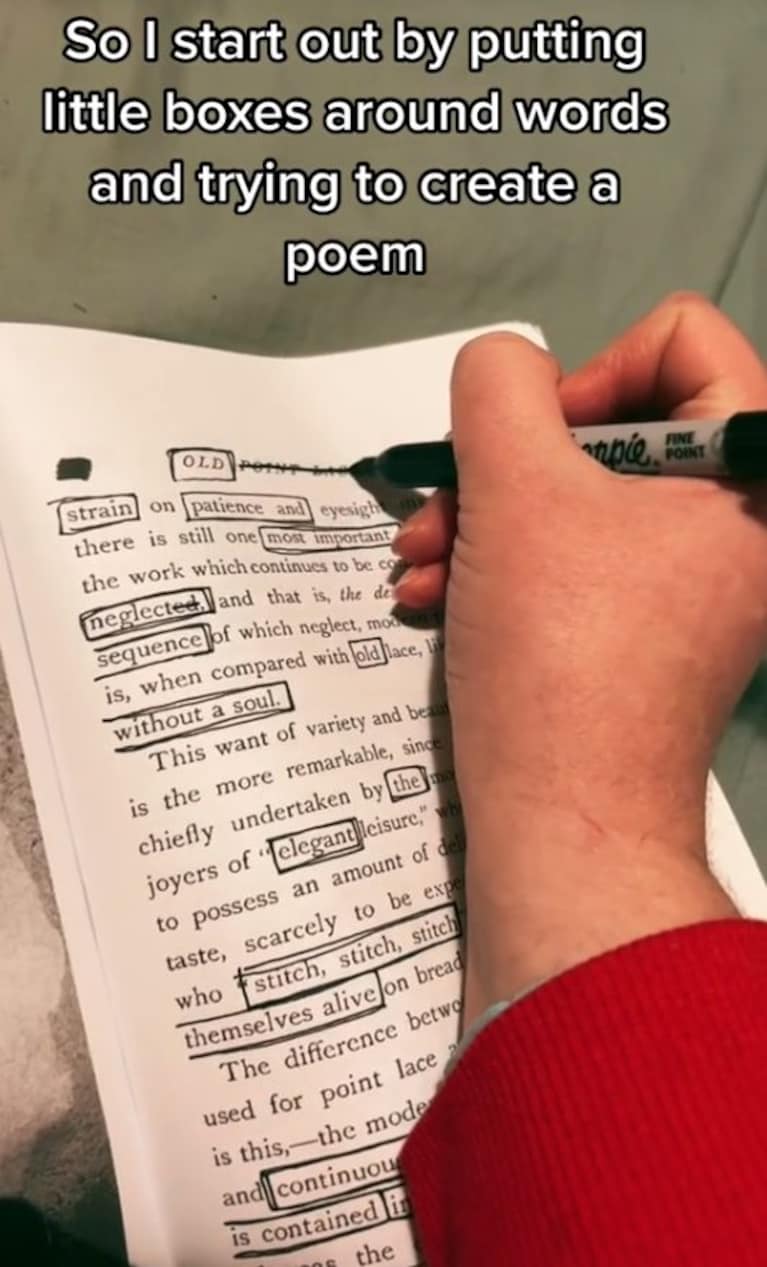 So I start out by putting
little boxes around words
and trying to create a
poem
OLD POINT
FINE
POINT
strain on patience and eyesight
there is still one most important
the work which continues to be
neglected, and that is, the
sequence of which neglect,
is, when compared with old lace,
without a soul.
This want of variety and
is the more remarkable, since
chiefly undertaken by the
joyers of "elegant leisure,"
to possess an amount of
taste, scarcely to be
who stitch, stitch, stitch
themselves alive on bread
The difference
used for point lace
is this,—the
and
is contained
the